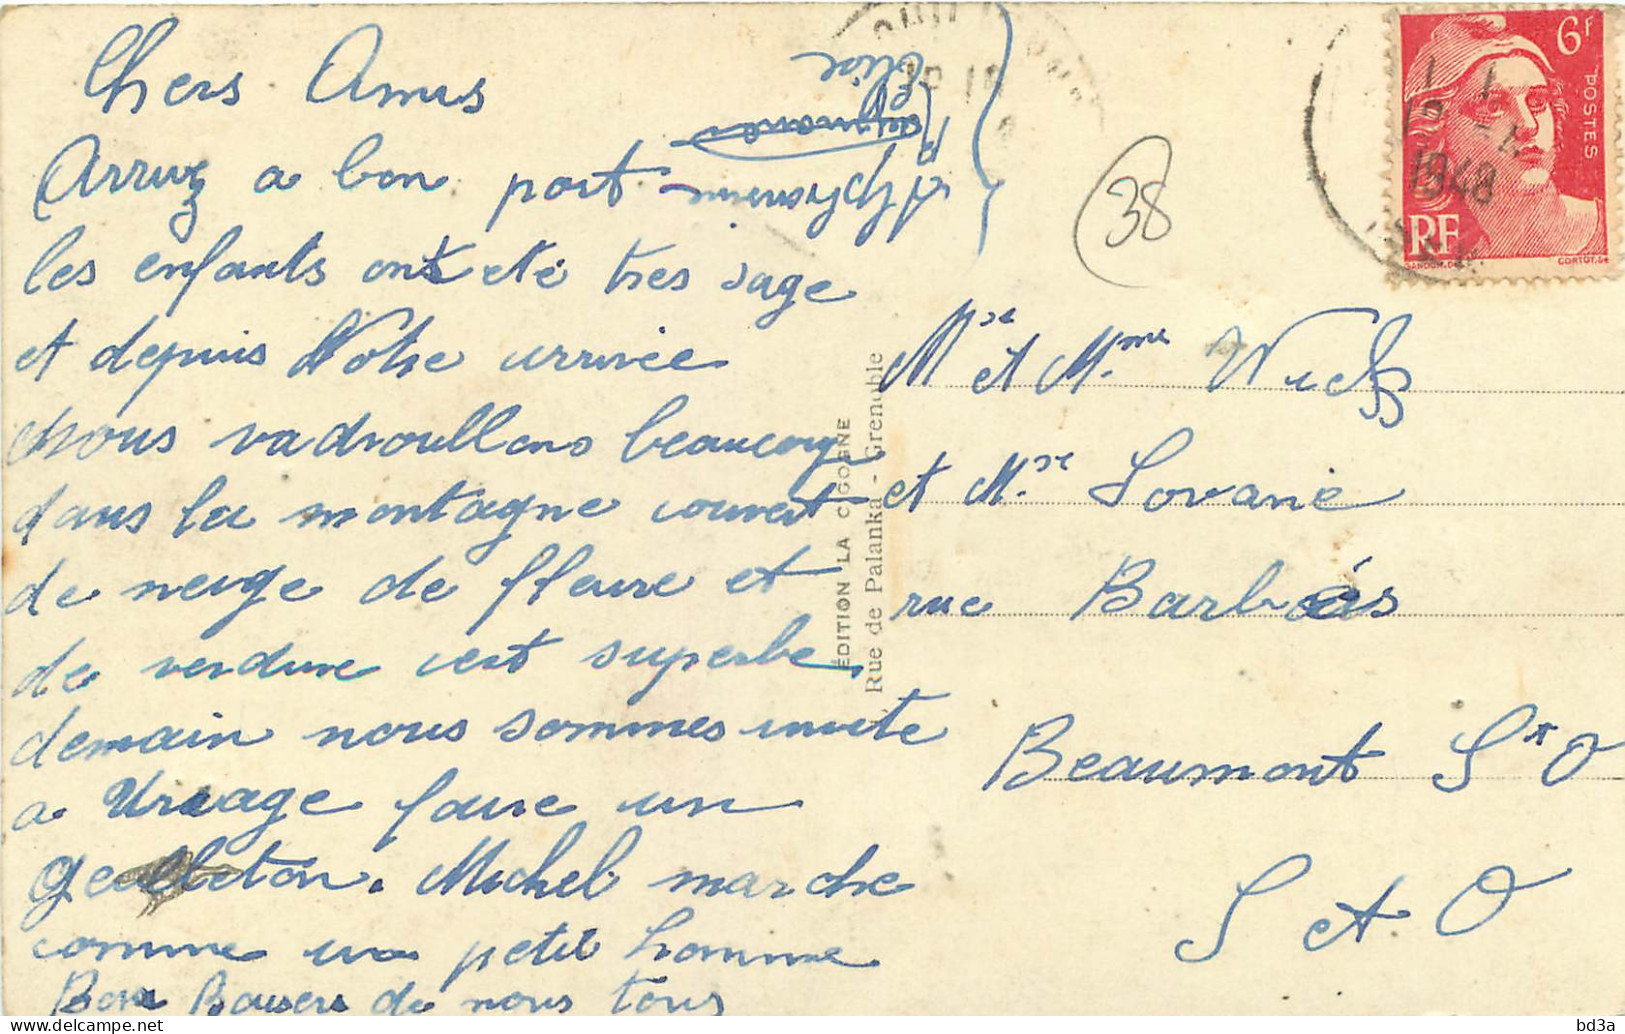 Chers Amis
Arrivz a bon port
les enfants ont eté tres sage
et depuis Notre arrivée
nous vadroullons beaucoup
dans la montagne couvert
de neige de fleure et
de verdure cest superbe
demain nous sommes invite
a Uriage faire un
gueuleton. Michel marche
comme un petit homme
Bon Baisers de nous tous
ÉDITION LA CIGOGNE
Rue de Palanka - Grenoble
38
6F
POSTES
RF
GANDON.DEL
CORTOT.SC
1948
Mr et Mme
et Mr. Sovanie
rue Barbés
Beaumont S/O
S et O